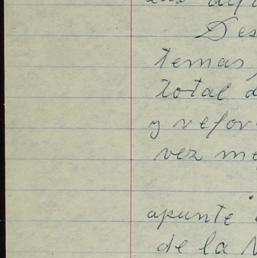 Des
temas,
total d
y refor
vez me
apunte
de la